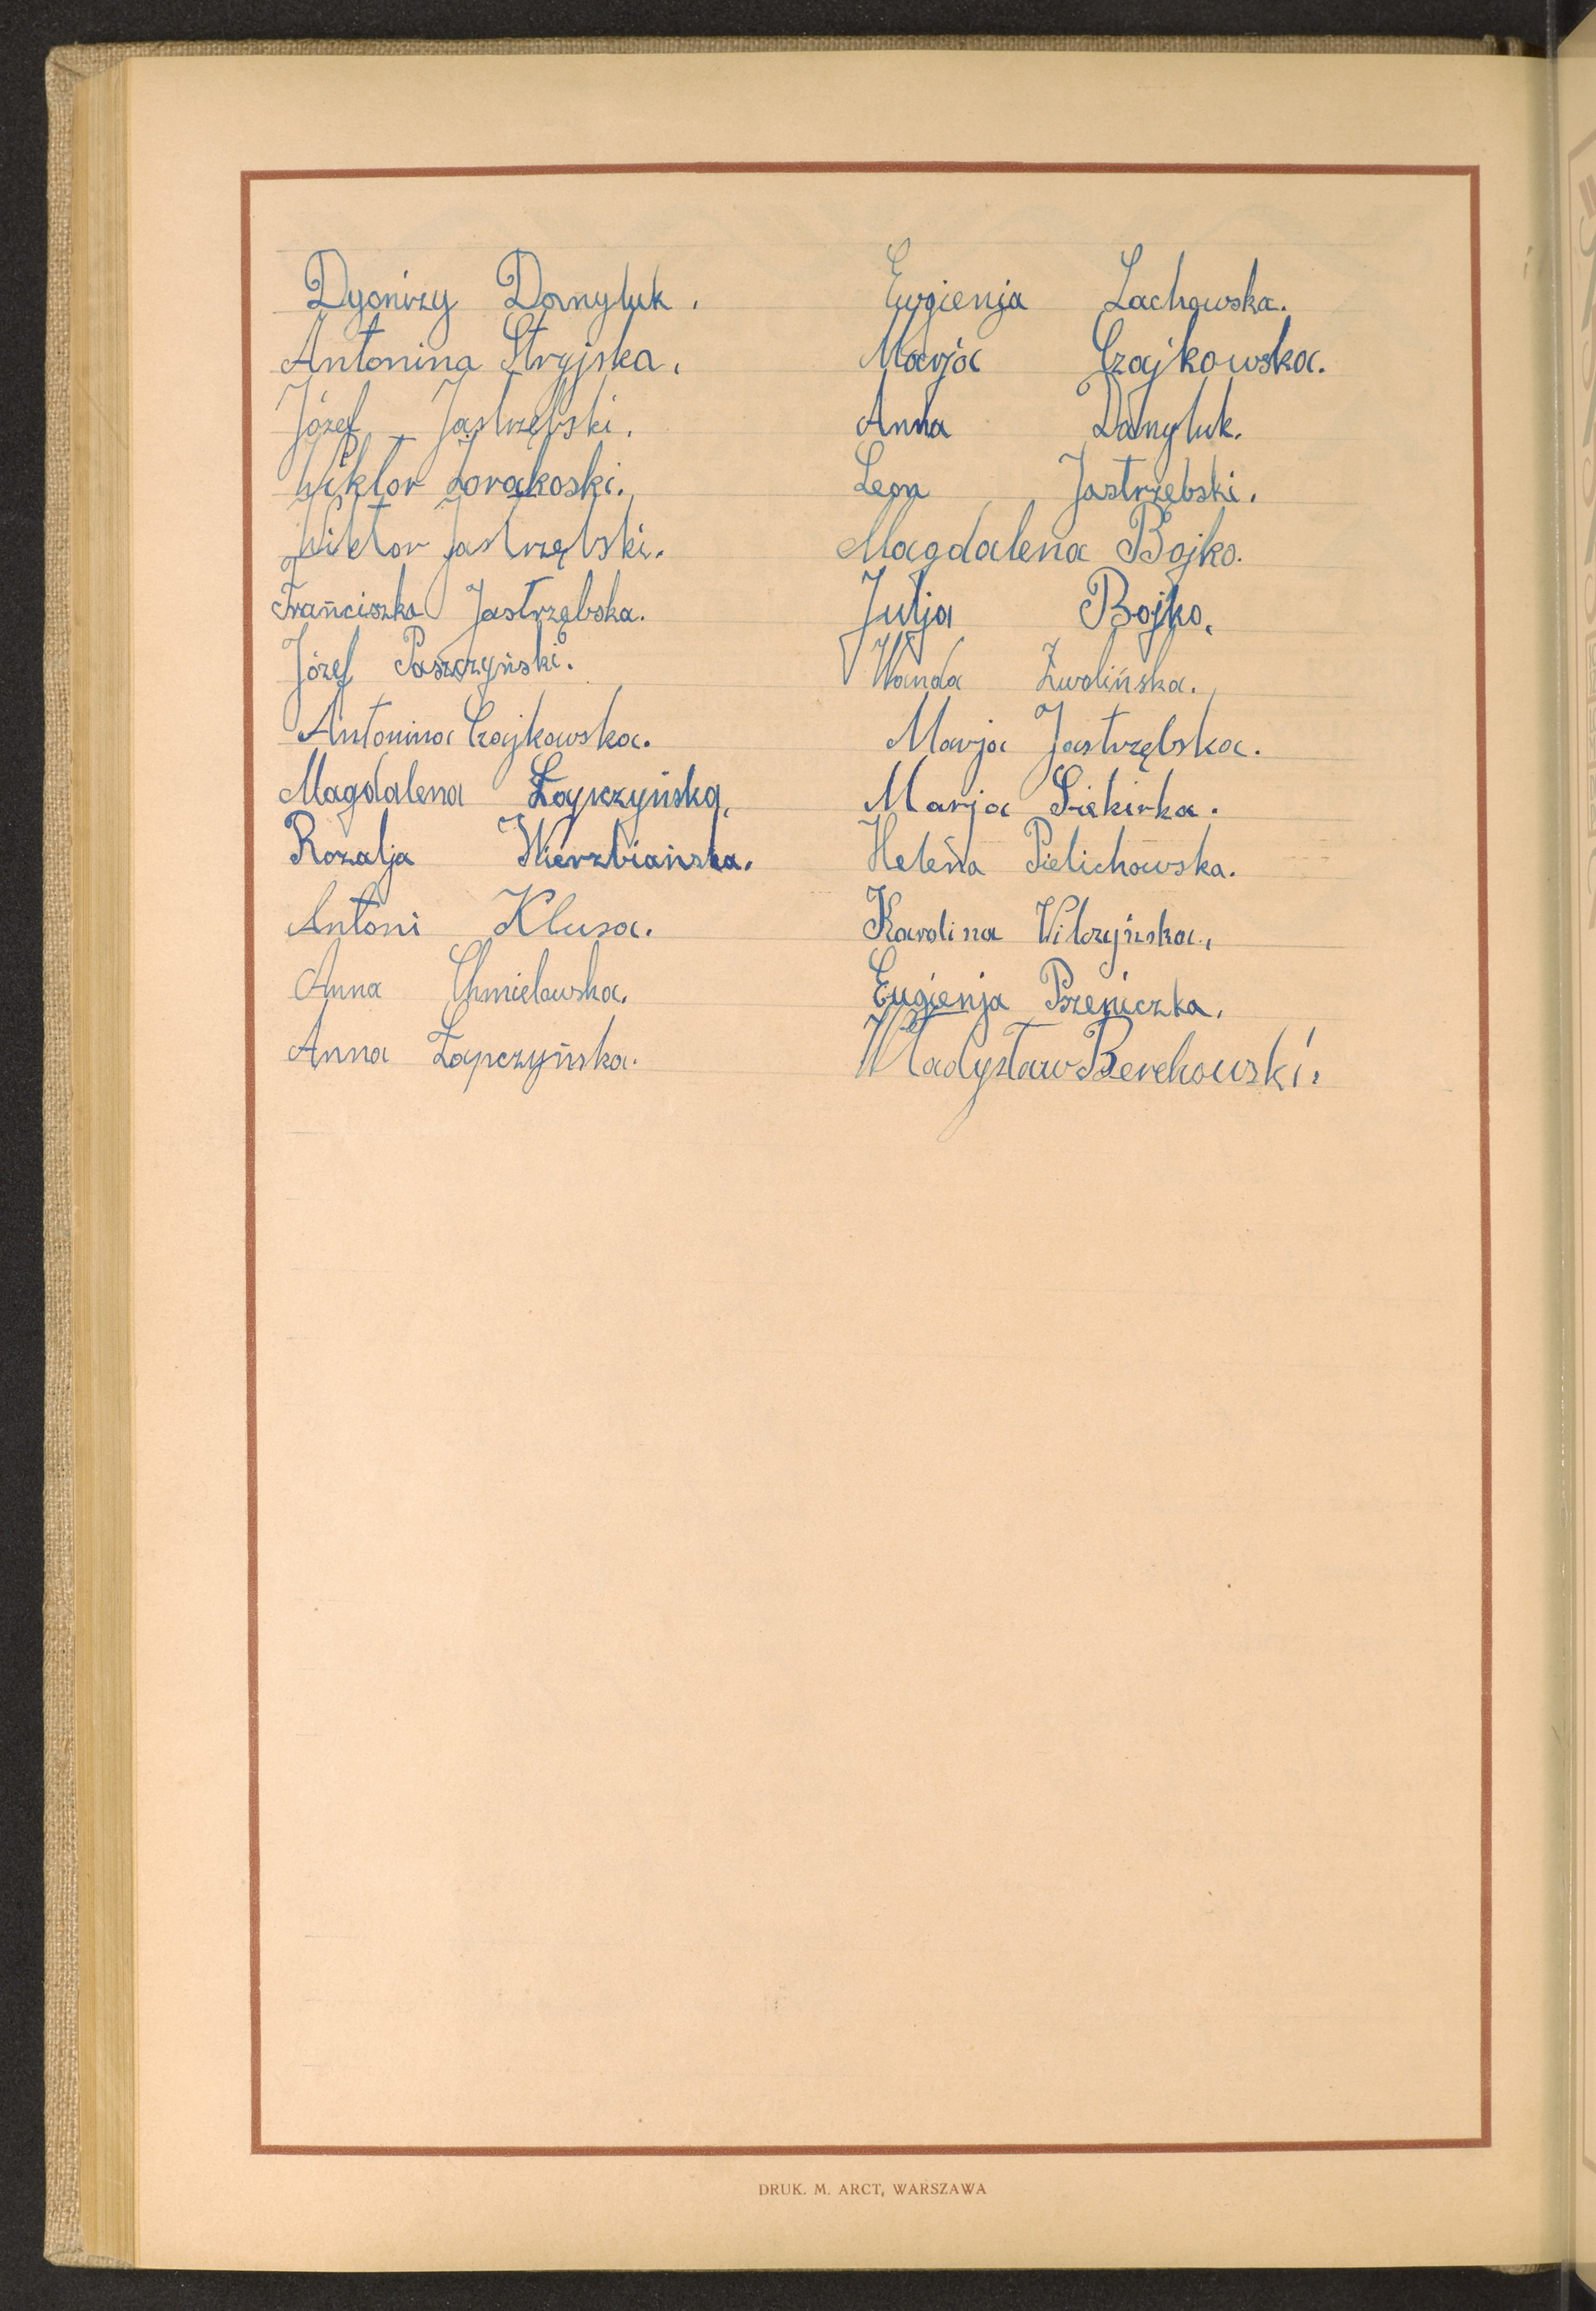 Dyonizy Danyluk.
Antonina Stryjska.
Józef Jastrzębski.
Wiktor Żorakoski.
Wiktor Jastrzębski.
Franciszka Jastrzębska.
Józef Paszczyński.
Antonina Czajkowska.
Magdalena Łapczyńska.
Rozalja Wierzbiańska.
Antoni Klusa.
Anna Chmielowska.
Anna Łapczyńska.
Eugienja Lachowska.
Marja Czajkowska.
Anna Danyluk.
Leon Jastrzębski.
Magdalena Bojko.
Julja Bojko.
Wanda Zwolińska.
Marja Jastrzębska.
Marja Siekirka.
Helena Pielichowska.
Karolina Wilczyńska.
Eugienja Pszeniczka.
Władysław Berehowski.
DRUK. M. ARCT, WARSZAWA